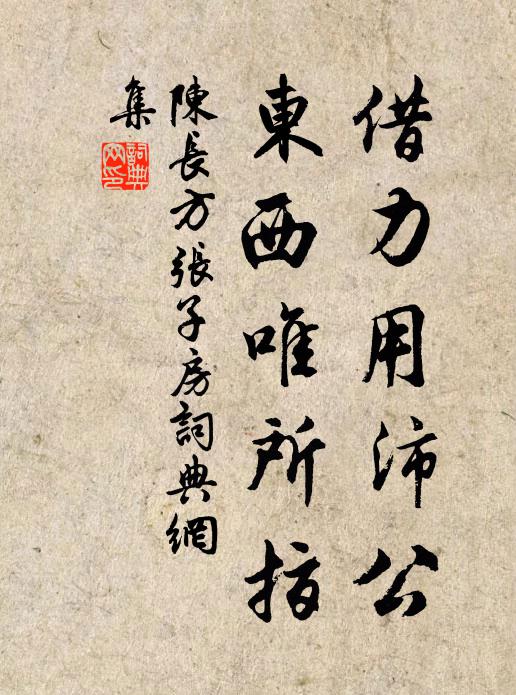 借力用沛公
東西唯所指
陳長方張子房詞典網
集
詞典
网印